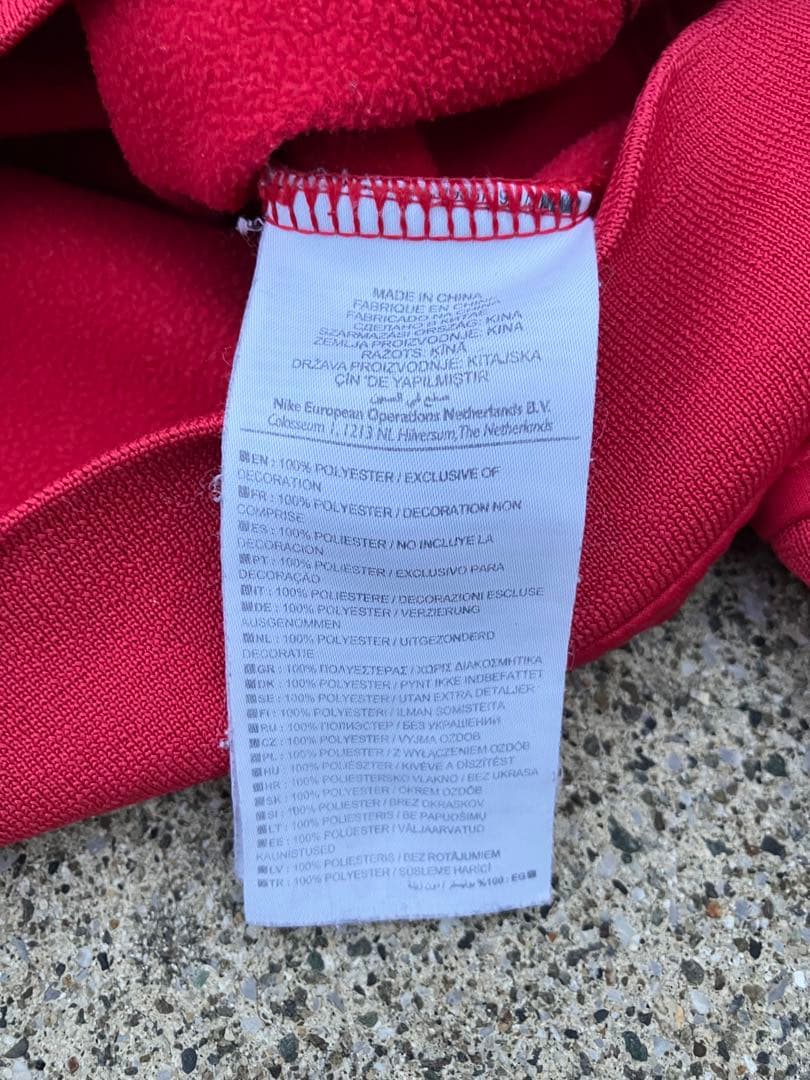 MADE IN CHINA
FABRIQUE EN CHINA
FABRICADO NA CHINA
СДЕЛАНО В КИТАЕ
SZÁRMAZÁSI ORSZÁG: KÍNA
ZEMLJA PROIZVODNJE: KINA
RAŽOTS: ĶĪNA
DRŽAVA PROIZVODNJE: KITAJSKA
ÇİN 'DE YAPILMIŞTIR
صنع في الصين
Nike European Operations Netherlands B.V.
Colosseum 1, 1213 NL Hilversum, The Netherlands
EN : 100% POLYESTER / EXCLUSIVE OF
DECORATION
FR : 100% POLYESTER / DECORATION NON
COMPRISE
ES : 100% POLIESTER / NO INCLUYE LA
DECORACION
PT : 100% POLIESTER / EXCLUSIVO PARA
DECORAÇÃO
IT : 100% POLIESTERE / DECORAZIONI ESCLUSE
DE : 100% POLYESTER / VERZIERUNG
AUSGENOMMEN
NL : 100% POLYESTER / UITGEZONDERD
DECORATIE
GR : 100% ΠΟΛΥΕΣΤΕΡΑΣ / ΧΩΡΙΣ ΔΙΑΚΟΣΜΗΤΙΚΑ
DK : 100% POLYESTER / PYNT IKKE INDBEFATTET
SE : 100% POLYESTER / UTAN EXTRA DETALJER
FI : 100% POLYESTERI / ILMAN SOMISTEITA
RU : 100% ПОЛИЭСТЕР / БЕЗ УКРАШЕНИЙ
CZ : 100% POLYESTER / VYJMA OZDOB
PL : 100% POLIESTER / Z WYŁĄCZENIEM OZDÓB
HU : 100% POLIÉSZTER / KIVÉVE A DÍSZÍTÉST
HR : 100% POLIESTERSKO VLAKNO / BEZ UKRASA
SK : 100% POLYESTER / OKREM OZDÔB
SI : 100% POLIESTER / BREZ OKRASKOV
LT : 100% POLIESTERIS / BE PAPUOŠIMŲ
EE : 100% POLÜESTER / VÄLJAARVATUD
KAUNISTUSED
LV : 100% POLIESTERIS / BEZ ROTĀJUMIEM
TR : 100% POLYESTER / SÜSLEME HARİCİ
%100 : EG